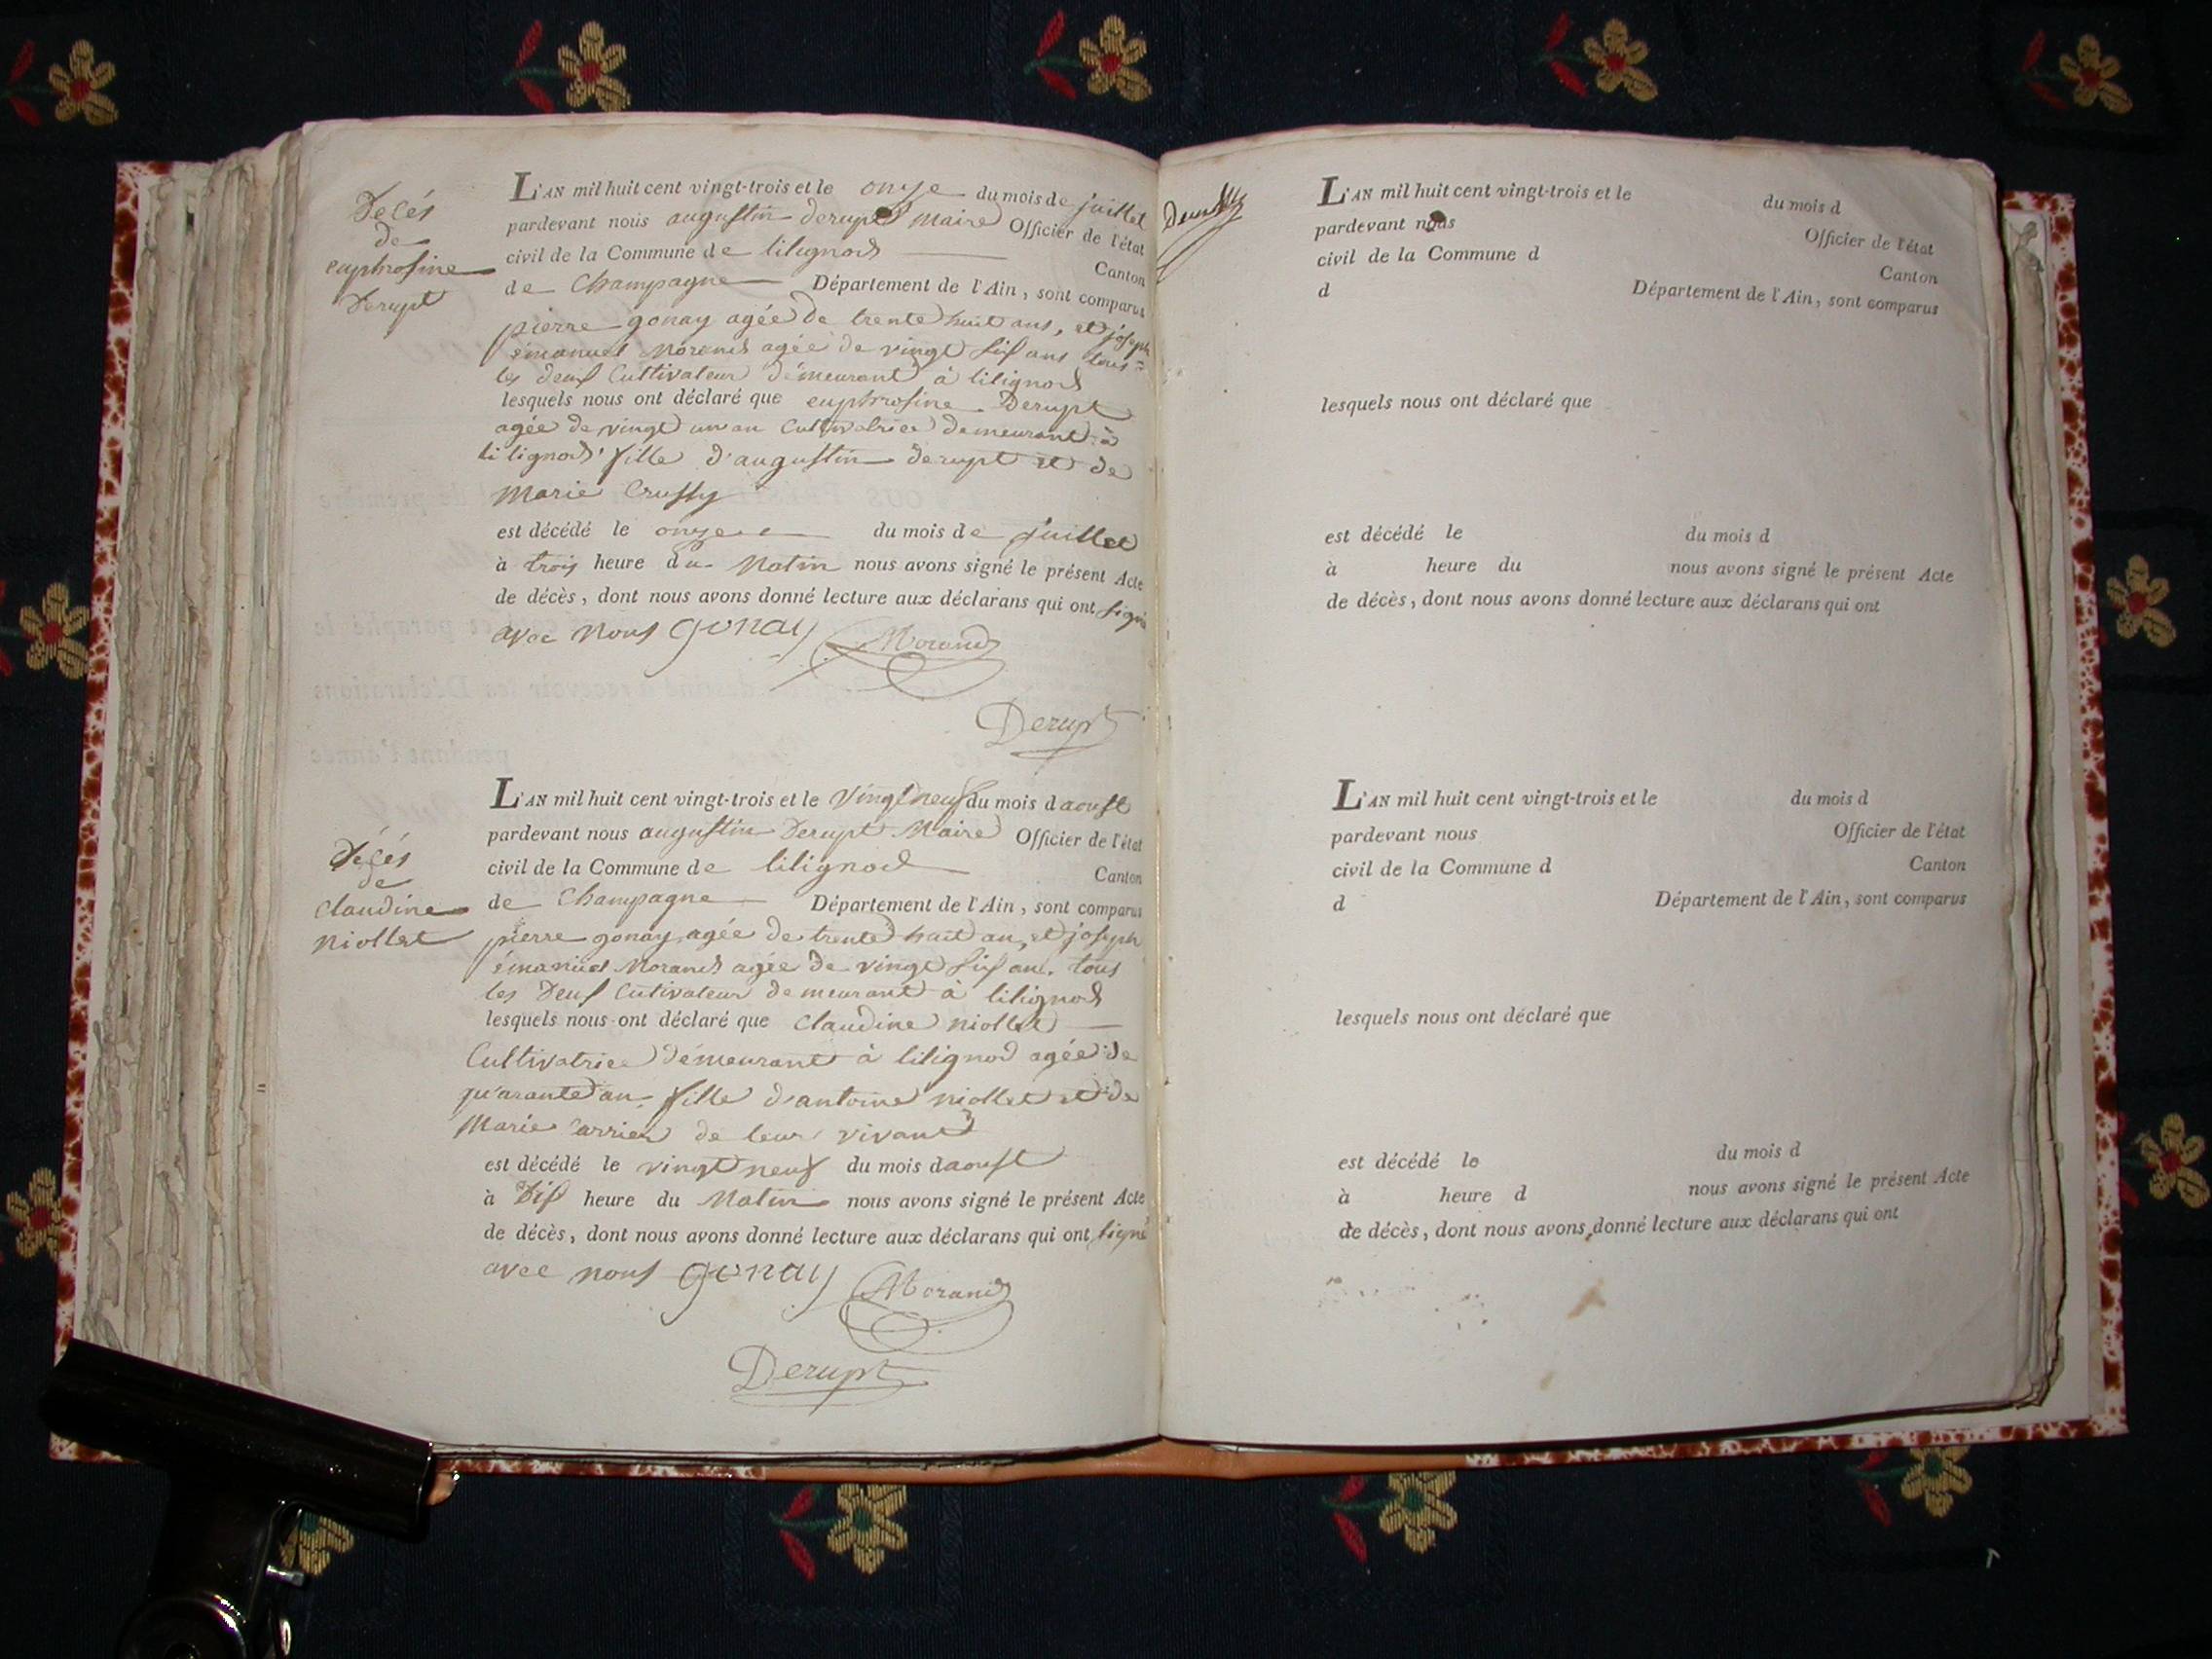 Décés
de
euphrosine
Derupt
L'AN mil huit cent vingt-trois et le onze du mois de juillet
pardevant nous augustin derupt Maire Officier de l'état
civil de la Commune de lilignod Canton
de Champagne Département de l'Ain, sont comparus
pierre gonay agée de trente huit ans, et joseph
émanuel Morand agée de vingt six ans tous
les deux Cultivateur démeurant à lilignod
lesquels nous ont déclaré que euphrosine Derupt
agée de vingt un an Cultivatrice demeurant à
lilignod fille d'augustin derupt et de
Marie
est décédé le onze du mois de juillet
à trois heure du Matin nous avons signé le présent Acte
de décès, dont nous avons donné lecture aux déclarans qui ont signé
avec nous gonay Morand
Derupt
Décés
de
Claudine
niollet
L'AN mil huit cent vingt-trois et le vingt neuf du mois d aoust
pardevant nous augustin Derupt Maire Officier de l'état
civil de la Commune de lilignod Canton
de Champagne Département de l'Ain, sont comparus
pierre gonay agée de trente huit an, et joseph
émanuel Morand agée de vingt six an. tous
les deux Cultivateur demeurant à lilignod
lesquels nous ont déclaré que Claudine niollet
Cultivatrice démeurant à lilignod agée de
qu'arante an fille d'antoine niollet et de
Marie Carrier de leur vivant
est décédé le vingt neuf du mois d aoust
à dix heure du Matin nous avons signé le présent Acte
de décès, dont nous avons donné lecture aux déclarans qui ont signé
avec nous gonay Morand
Derupt
L'AN mil huit cent vingt-trois et le du mois d
pardevant nous Officier de l'état
civil de la Commune d Canton
d Département de l'Ain, sont comparus
lesquels nous ont déclaré que
est décédé le du mois d
à heure du nous avons signé le présent Acte
de décès, dont nous avons donné lecture aux déclarans qui ont
L'AN mil huit cent vingt-trois et le du mois d
pardevant nous Officier de l'état
civil de la Commune d Canton
d Département de l'Ain, sont comparus
lesquels nous ont déclaré que
est décédé le du mois d
à heure d nous avons signé le présent Acte
de décès, dont nous avons donné lecture aux déclarans qui ont